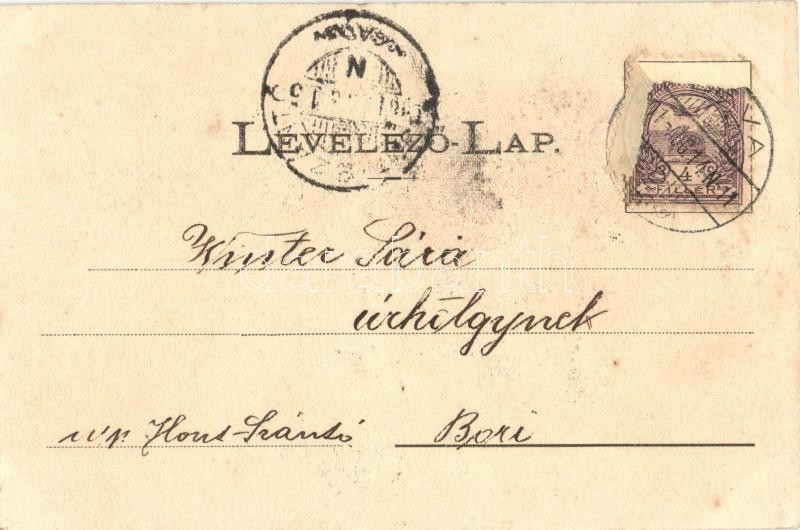 LEVELEZŐ-LAP.
4
FILLÉR
Winter Sárá
úrhölgynek
u/p. Hont-Szántó Bori